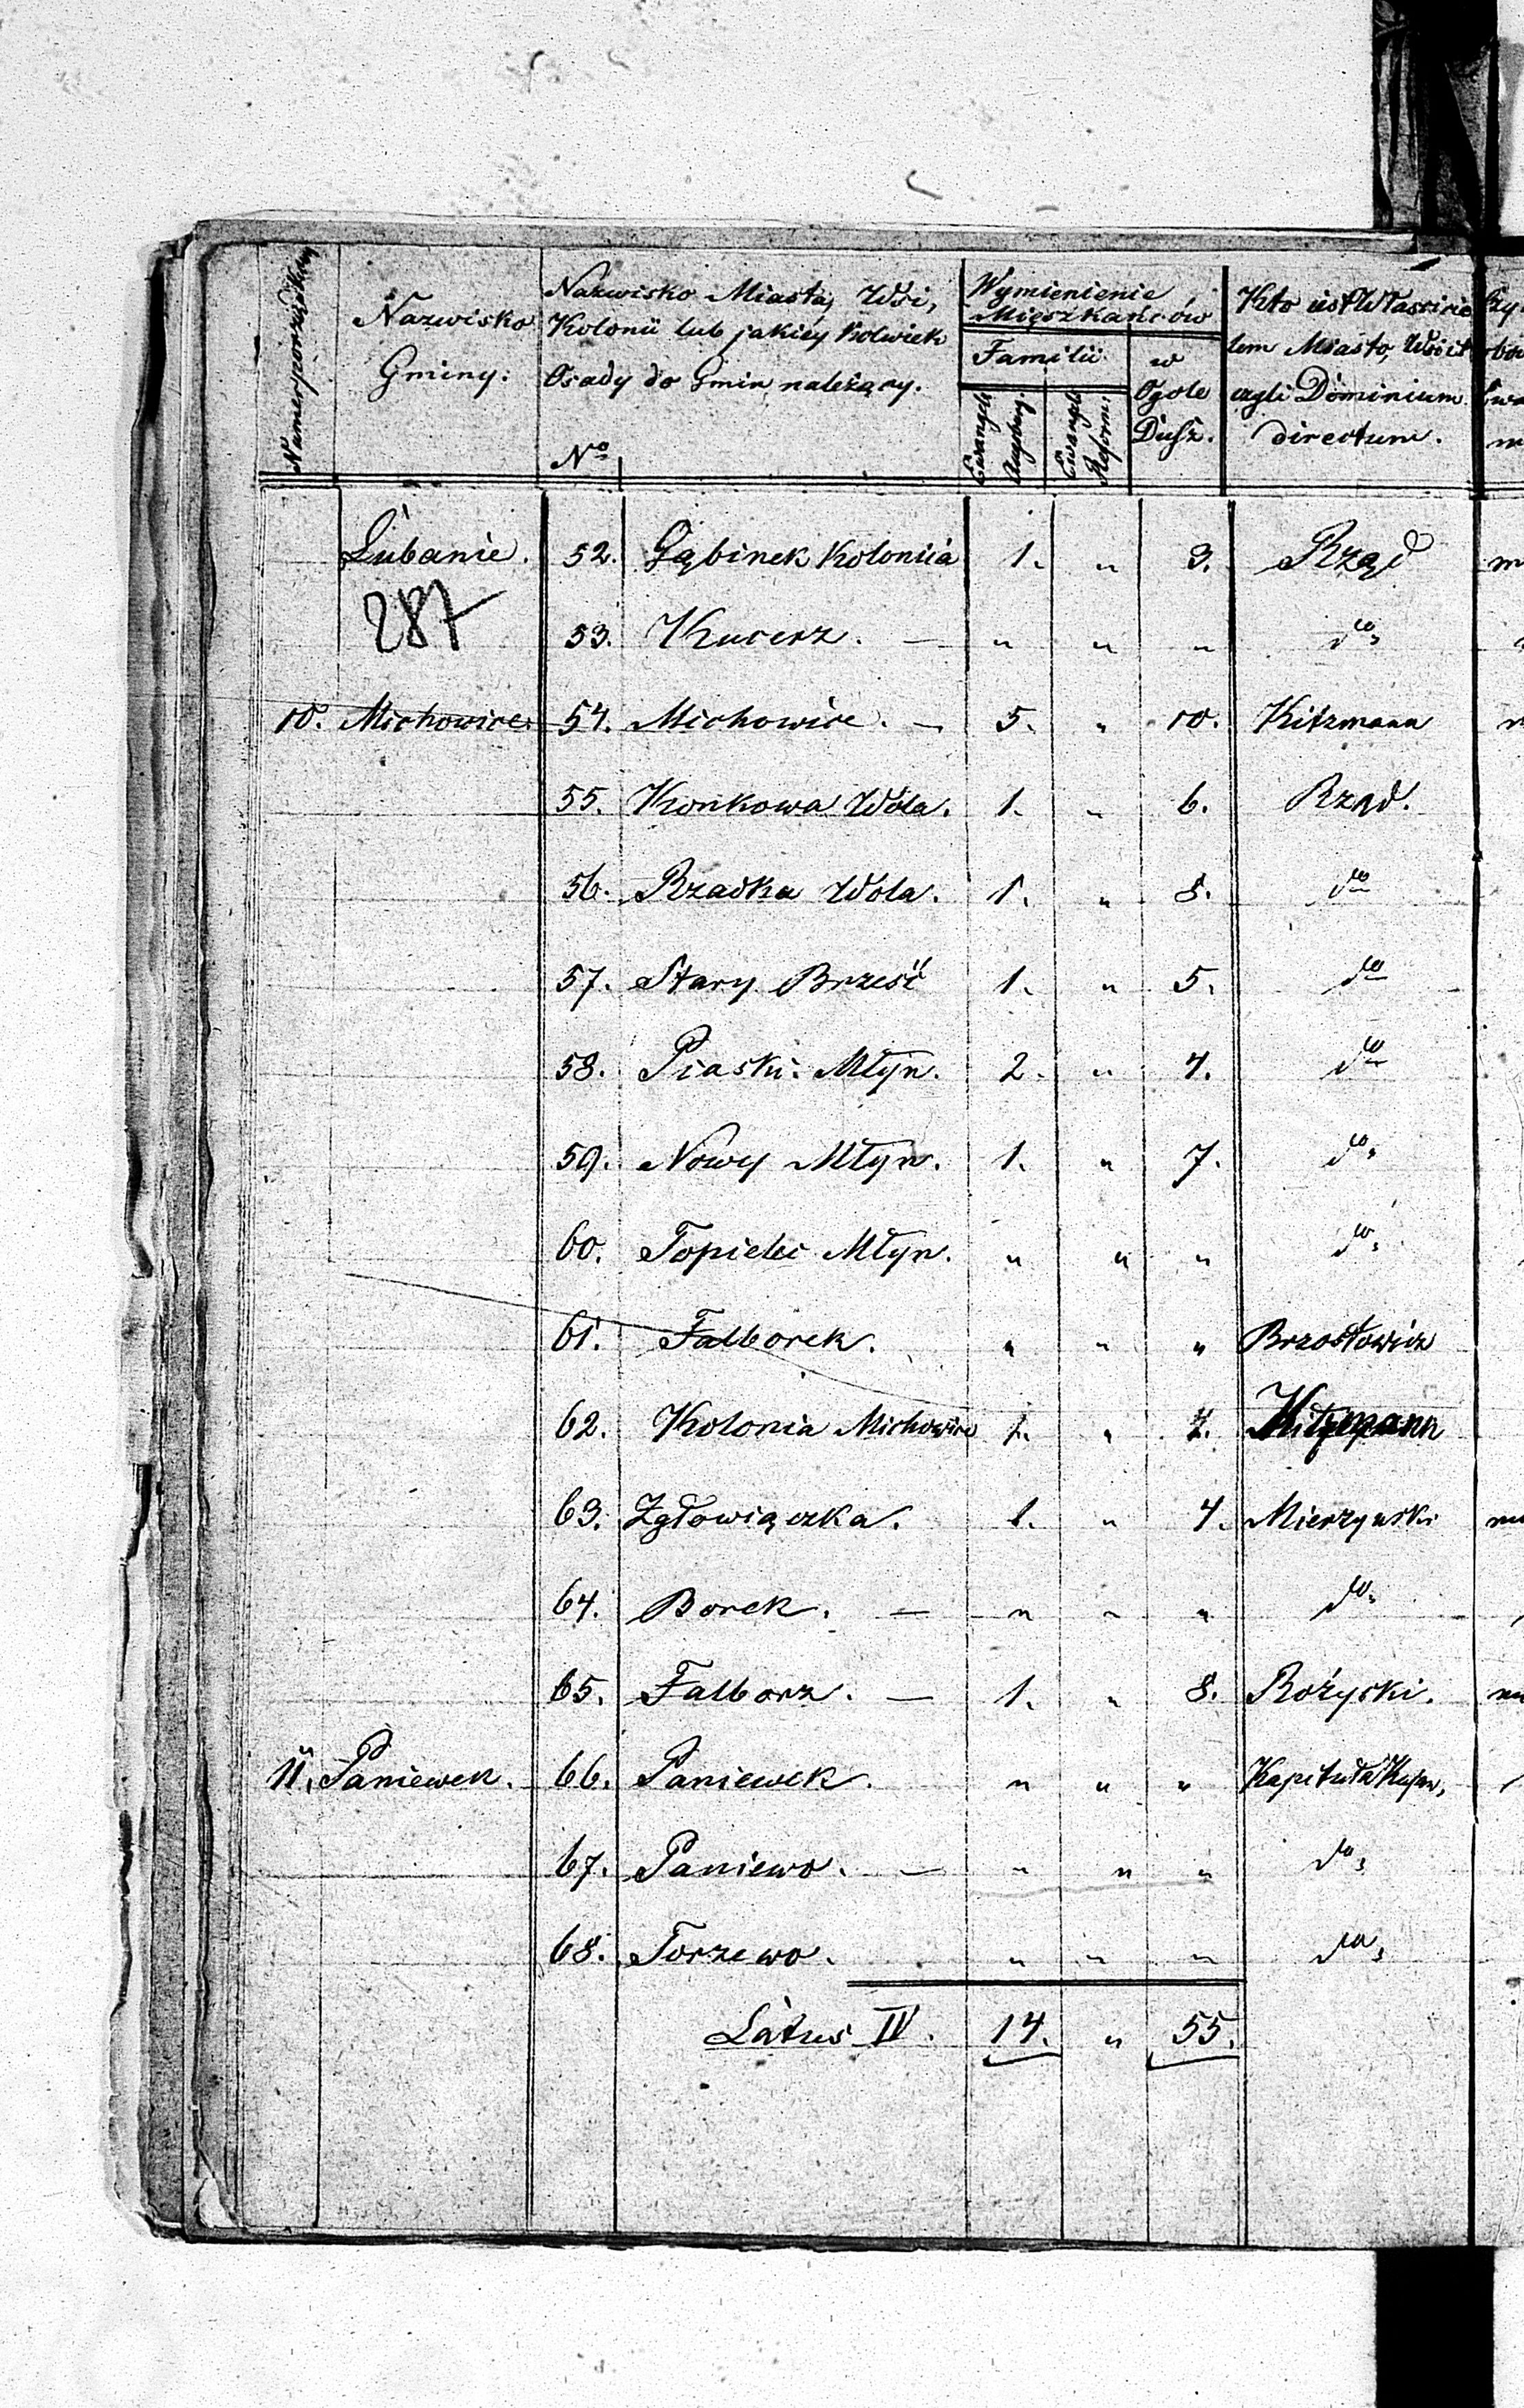 Numer porządkowy
Nazwisko
Gminy:
Nazwisko Miasta, Wsi,
Kolonii lub jakiéy kolwiek
Osady do Gmin należący.
No
Wymienienie
Mięszkańców
Familii
Ewangel: Augsburg.
Ewangel: Reform.
w
Ogole
Dusz.
Kto iest Właścicie
lem Miasta,
czyli Dominium
directum.
Lubanie. 52. Gąbinek Koloniia 1. " 3. Rząd
287
53. Kucerz. — " " " do
10. Michowice. 54. Michowice. — 5. " 10. Kitzmann
55. Konkowa Wola. 1. " 6. Rząd.
56. Rzadka Wola. 1. " 8. do
57. Stary Brześć 1. " 5. do
58. Piaski Młyn. 2. " 4. do
59. Nowy Młyn. 1. " 7. do
60. Topielec Młyn. " " " do
61. Falborek. " " " Brzostowicz
62. Kolonia Michowice " Kitzmann
63. Zgłowiączka. 1. " 4. Mierzynski
64. Borek. — " " " do
65. Falborz. — 1. " 8. Rożyski.
11. Paniewek. 66. Paniewek. " " " Kapituła Kujaw,
67. Paniewo. — " " " do
68. Torzewo. " " " do
Latus IV. 14. " 55.